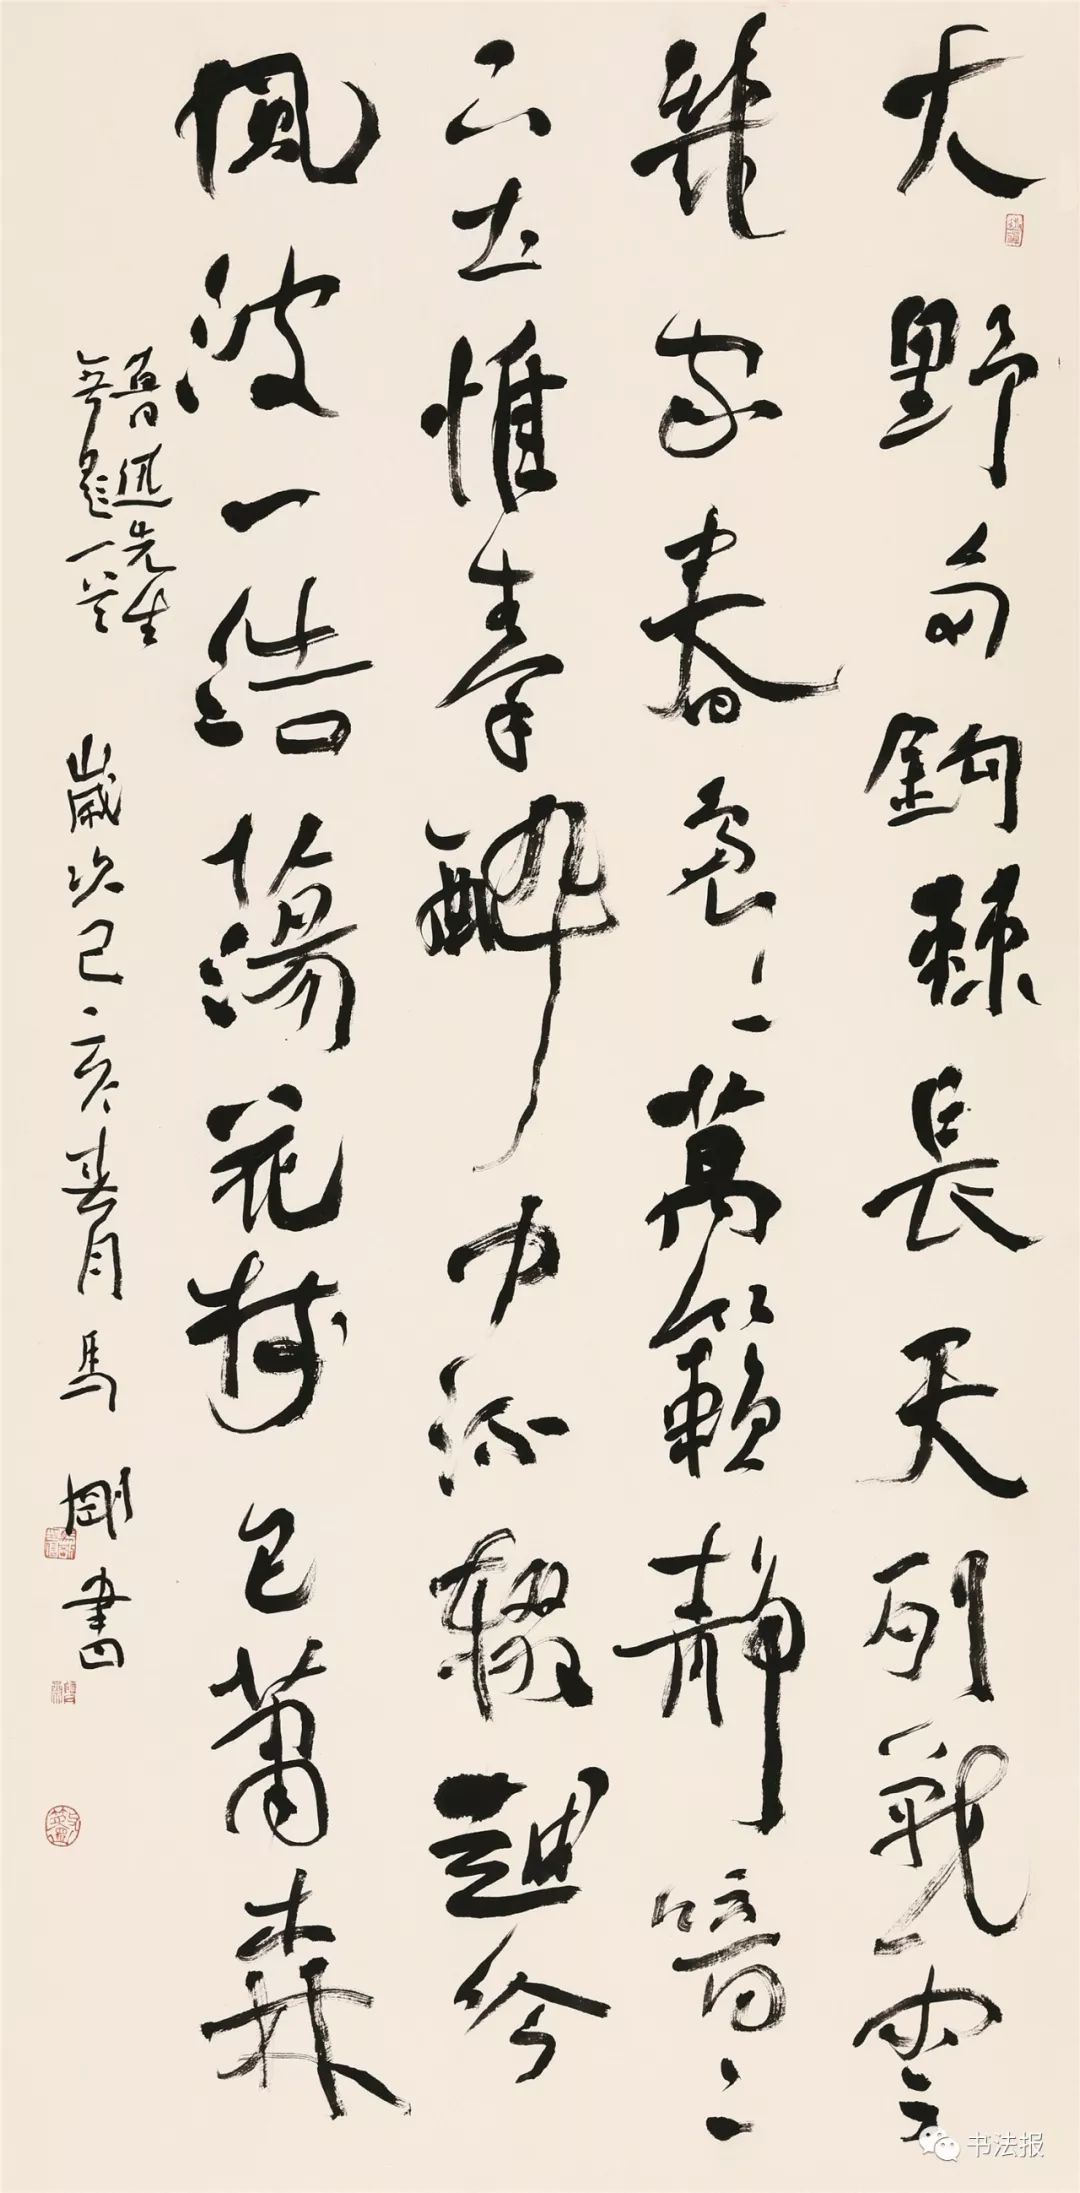 大野多鉤棘長天列戰雲
幾家春裊〻萬籟靜愔〻
下土惟秦醉中流輟越吟
風波一浩蕩花樹已蕭森
魯迅先生
無題一首
歲次己亥春月馬剛書
书法报